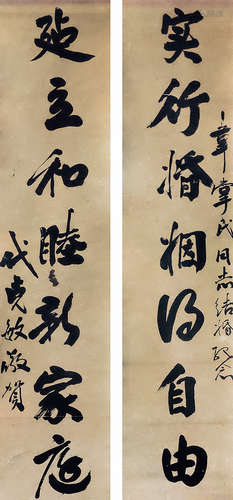 实行婚姻得自由
章掌民同志结婚纪念
建立和睦新家庭
代克敏敬贺